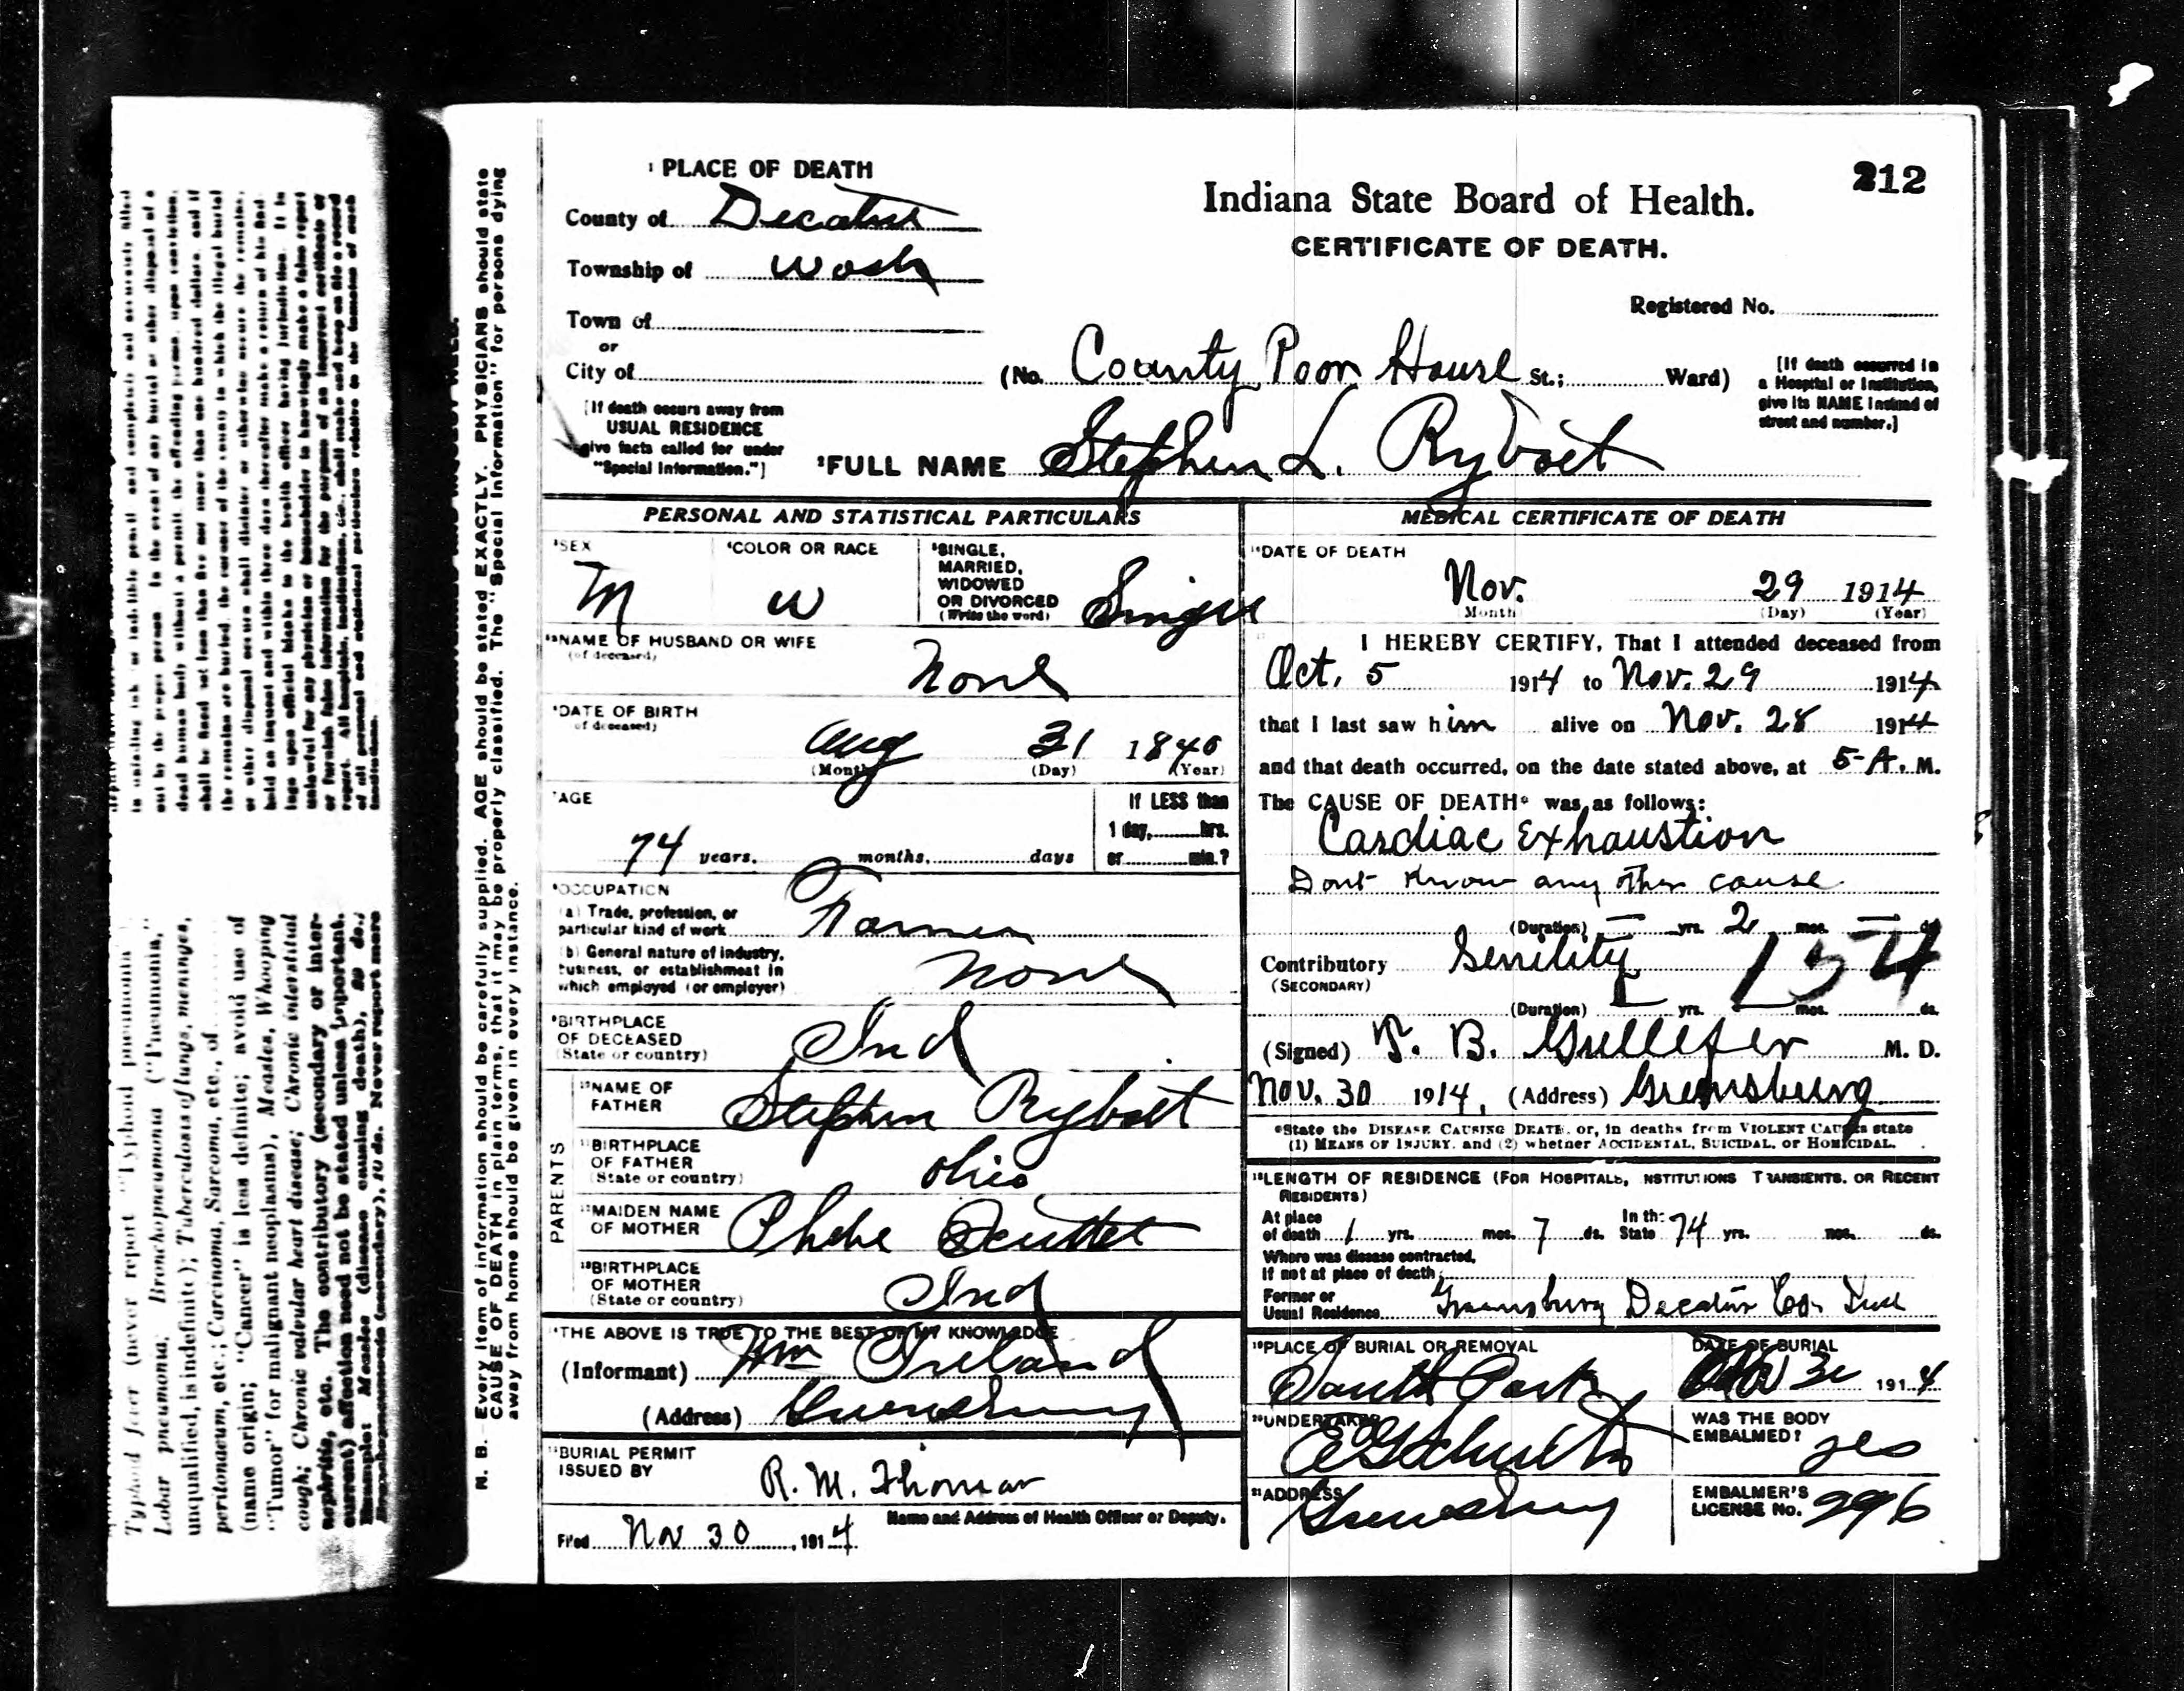 212
Indiana State Board of Health.
CERTIFICATE OF DEATH.
Registered No.
1 PLACE OF DEATH
County of Decatur
Township of Wash
Town of
or
City of (No. County Poor House St.; Ward)
[If death occurred in a Hospital or Institution, give its NAME instead of street and number.]
[If death occurs away from USUAL RESIDENCE give facts called for under "Special Information."]
2 FULL NAME Stephen L. Ryboet
PERSONAL AND STATISTICAL PARTICULARS
3 SEX
M
4 COLOR OR RACE
W
5 SINGLE, MARRIED, WIDOWED OR DIVORCED (Write the word)
Single
NAME OF HUSBAND OR WIFE
(of deceased)
None
6 DATE OF BIRTH
(of deceased)
Aug 31 1840
(Month) (Day) (Year)
7 AGE
74 years, months, days
If LESS than
1 day, hrs.
or min.?
8 OCCUPATION
(a) Trade, profession, or
particular kind of work Farmer
(b) General nature of industry,
business, or establishment in
which employed (or employer) None
9 BIRTHPLACE
OF DECEASED
(State or country) Ind
PARENTS
10 NAME OF
FATHER Stephen Ryboet
11 BIRTHPLACE
OF FATHER
(State or country) Ohio
12 MAIDEN NAME
OF MOTHER Phebe
13 BIRTHPLACE
OF MOTHER
(State or country) Ind
14 THE ABOVE IS TRUE TO THE BEST OF MY KNOWLEDGE
(Informant) Wm Ireland
(Address) Greensburg
15 BURIAL PERMIT
ISSUED BY R. M. Thomas
Name and Address of Health Officer or Deputy.
Filed Nov 30, 1914
MEDICAL CERTIFICATE OF DEATH
16 DATE OF DEATH
Nov. 29 1914
(Month) (Day) (Year)
I HEREBY CERTIFY, That I attended deceased from
Oct. 5 1914 to Nov. 29 1914
that I last saw him alive on Nov. 28 1914
and that death occurred, on the date stated above, at 5-A. M.
The CAUSE OF DEATH* was as follows:
Cardiac Exhaustion
Dont Know any other cause
(Duration) — yrs. 2 mos. — ds.
Contributory Senility 154
(SECONDARY)
(Duration) yrs. mos. ds.
(Signed) T. B. Gullefer M. D.
Nov. 30 1914, (Address) Greensburg
*State the DISEASE CAUSING DEATH, or, in deaths from VIOLENT CAUSES state
(1) MEANS OF INJURY, and (2) whether ACCIDENTAL, SUICIDAL, or HOMICIDAL.
18 LENGTH OF RESIDENCE (FOR HOSPITALS, INSTITUTIONS TRANSIENTS, OR RECENT
RESIDENTS)
At place
of death 1 yrs. mos. 7 ds. In the State 74 yrs. mos. ds.
Where was disease contracted,
if not at place of death
Former or
Usual Residence Greensburg Decatur Co. Ind
19 PLACE OF BURIAL OR REMOVAL
South Park
DATE OF BURIAL
1914
20 UNDERTAKER
WAS THE BODY
EMBALMED? yes
21 ADDRESS
Greensburg
EMBALMER'S
LICENSE No. 996
N. B. Every item of information should be carefully supplied. AGE should be stated EXACTLY. PHYSICIANS should state
CAUSE OF DEATH in plain terms, that it may be properly classified. The "Special Information" for persons dying
away from home should be given in every instance.
Typhoid fever (never report "Typhoid pneumonia
Lobar pneumonia; Bronchopneumonia ("Pneumonia,"
unqualified, is indefinite); Tuberculosis of lungs, meninges,
peritonaeum, etc.; Carcinoma, Sarcoma, etc., of
(name origin; "Cancer" is less definite; avoid use of
"Tumor" for malignant neoplasms), Measles, Whooping
cough; Chronic valvular heart disease; Chronic interstitial
nephritis, etc. The contributory (secondary or inter-
current) affection need not be stated unless important.
Example: Measles (disease causing death), 29 ds.;
Bronchopneumonia (secondary), 10 ds. Never report mere